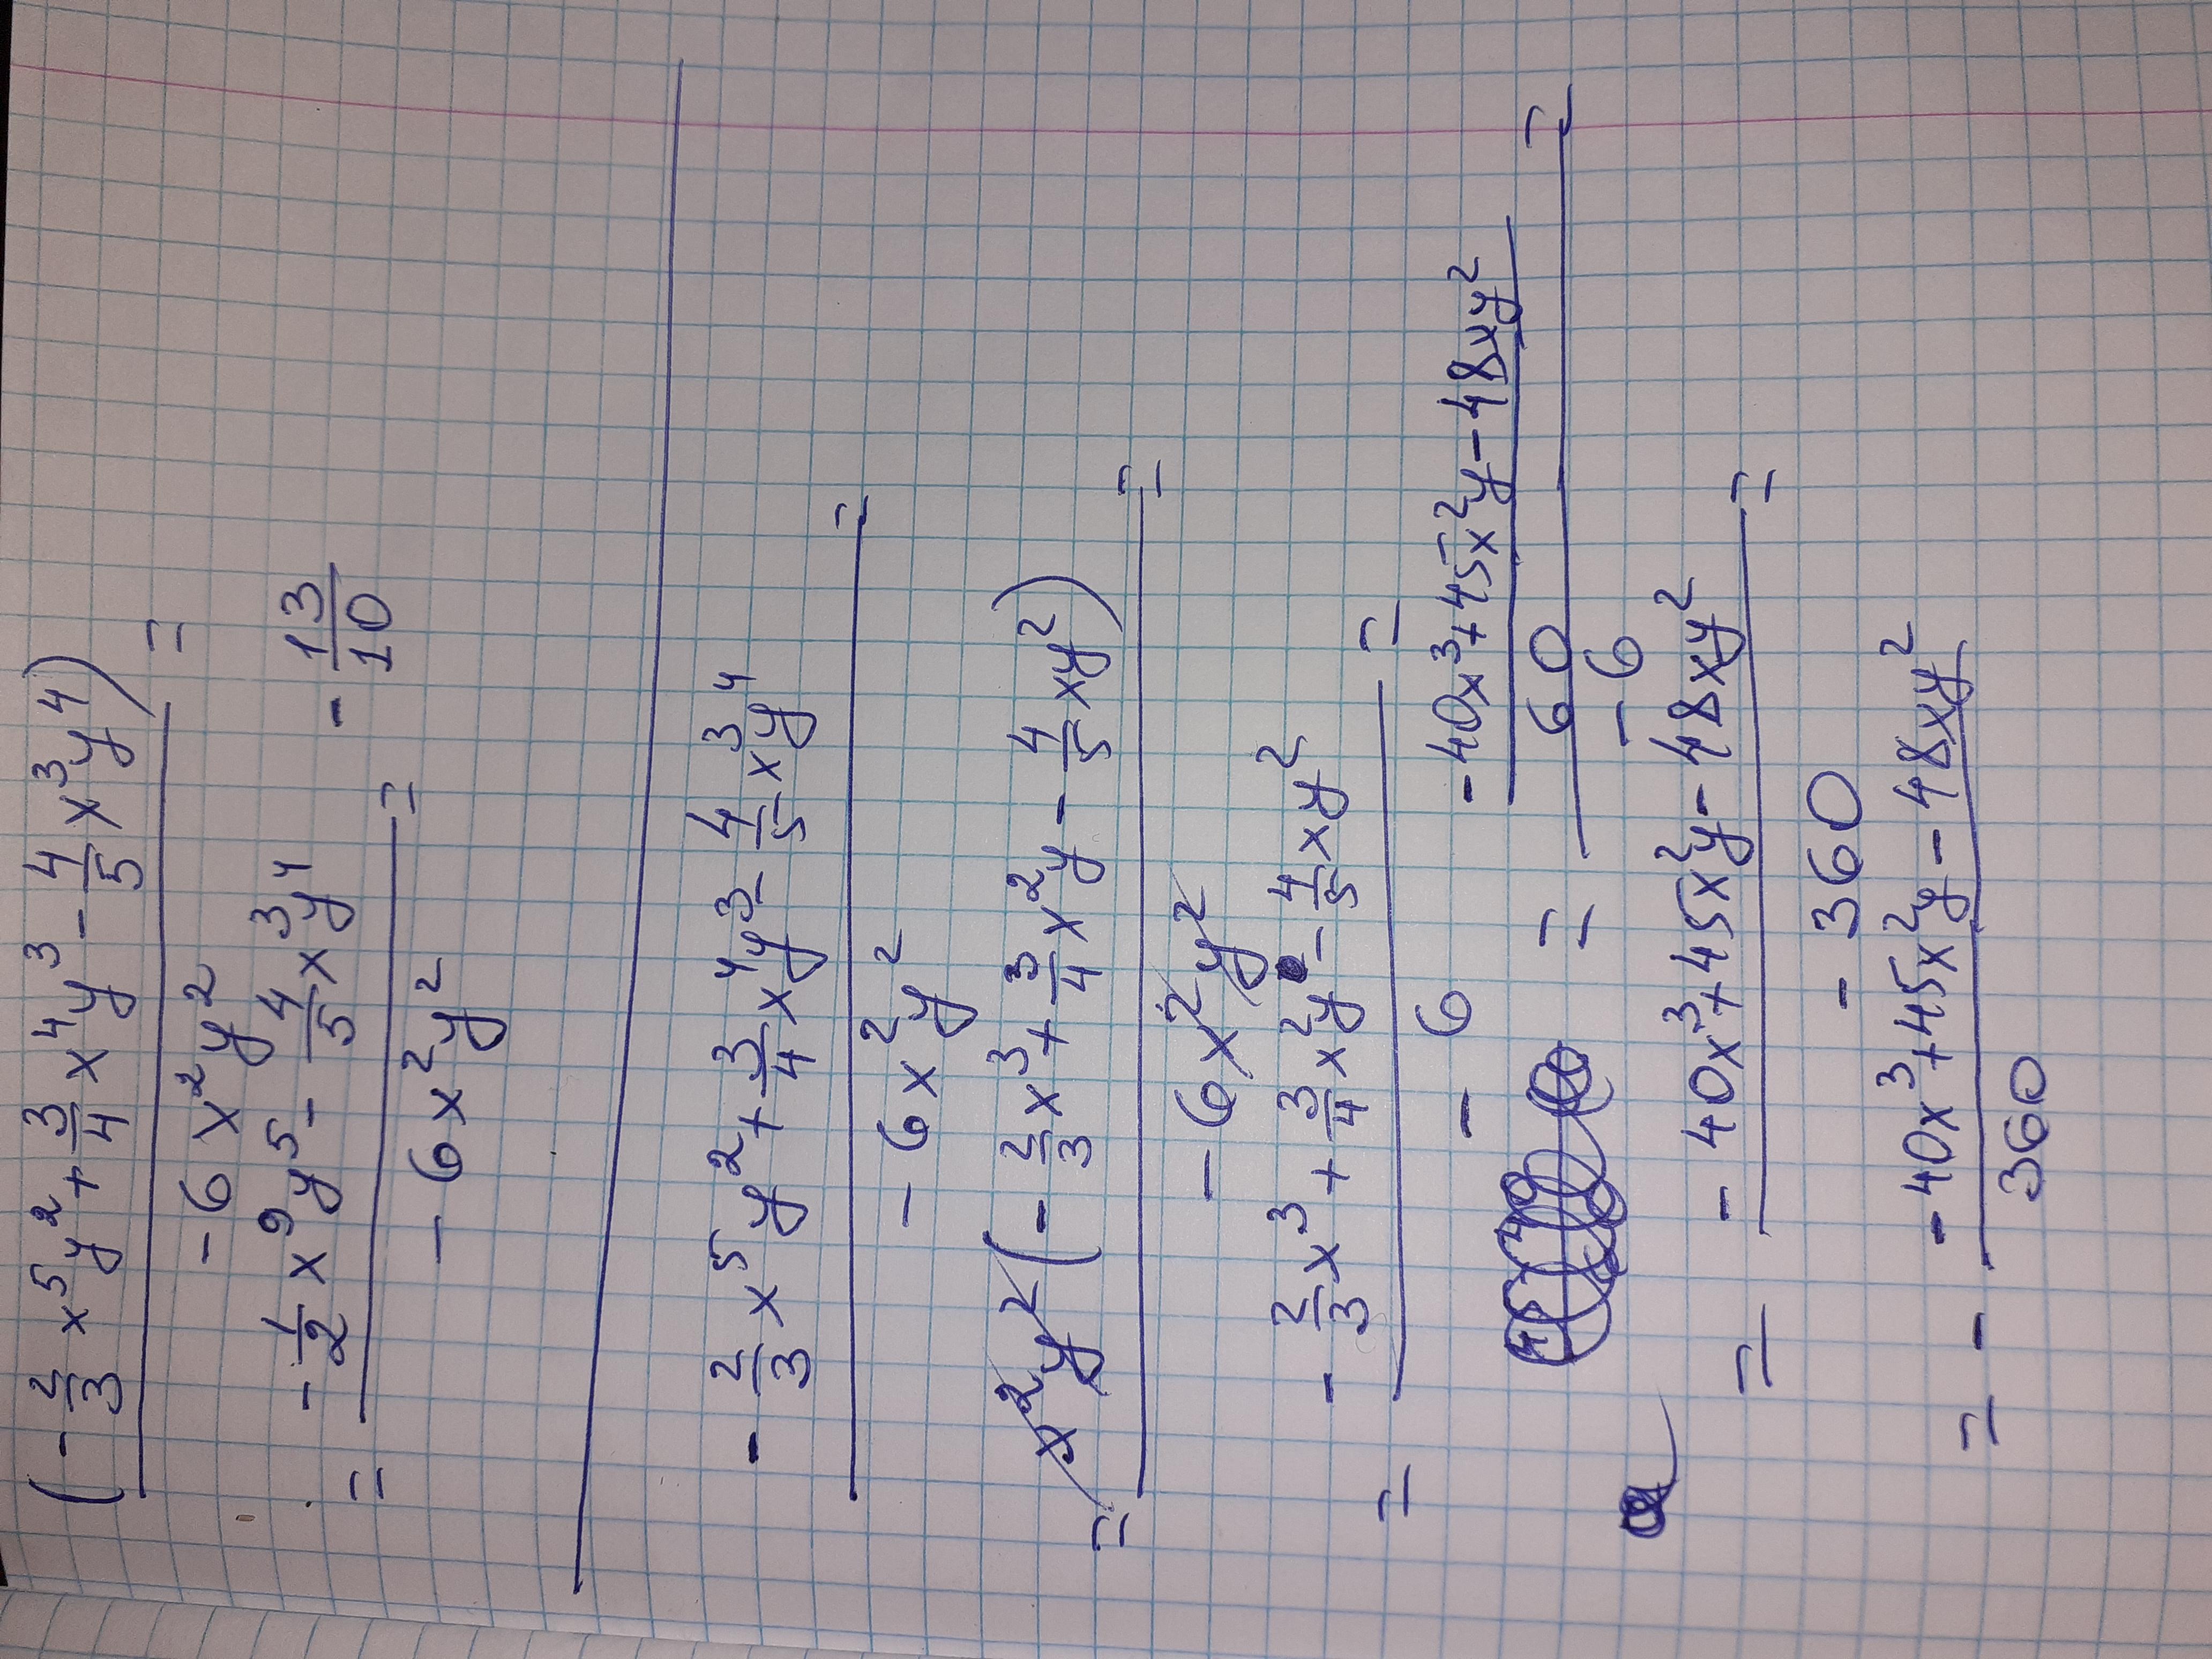 (-2/3 x⁵y² + 3/4 x⁴y³ - 4/5 x³y⁴) =
-6x²y²
= -1/2 x⁹y⁵ - 4/5 x³y⁴ = -13/10
-6x²y²
-2/3 x⁵y² + 3/4 x⁴y³ - 4/5 x³y⁴ =
-6x²y²
= x²y²(-2/3 x³ + 3/4 x²y - 4/5 xy²) =
-6x²y²
= -2/3 x³ + 3/4 x²y - 4/5 xy² =
-6
= -40x³+45x²y-48xy² =
60
-6
= -40x³+45x²y-48xy² =
-360
= - -40x³+45x²y-48xy²
360